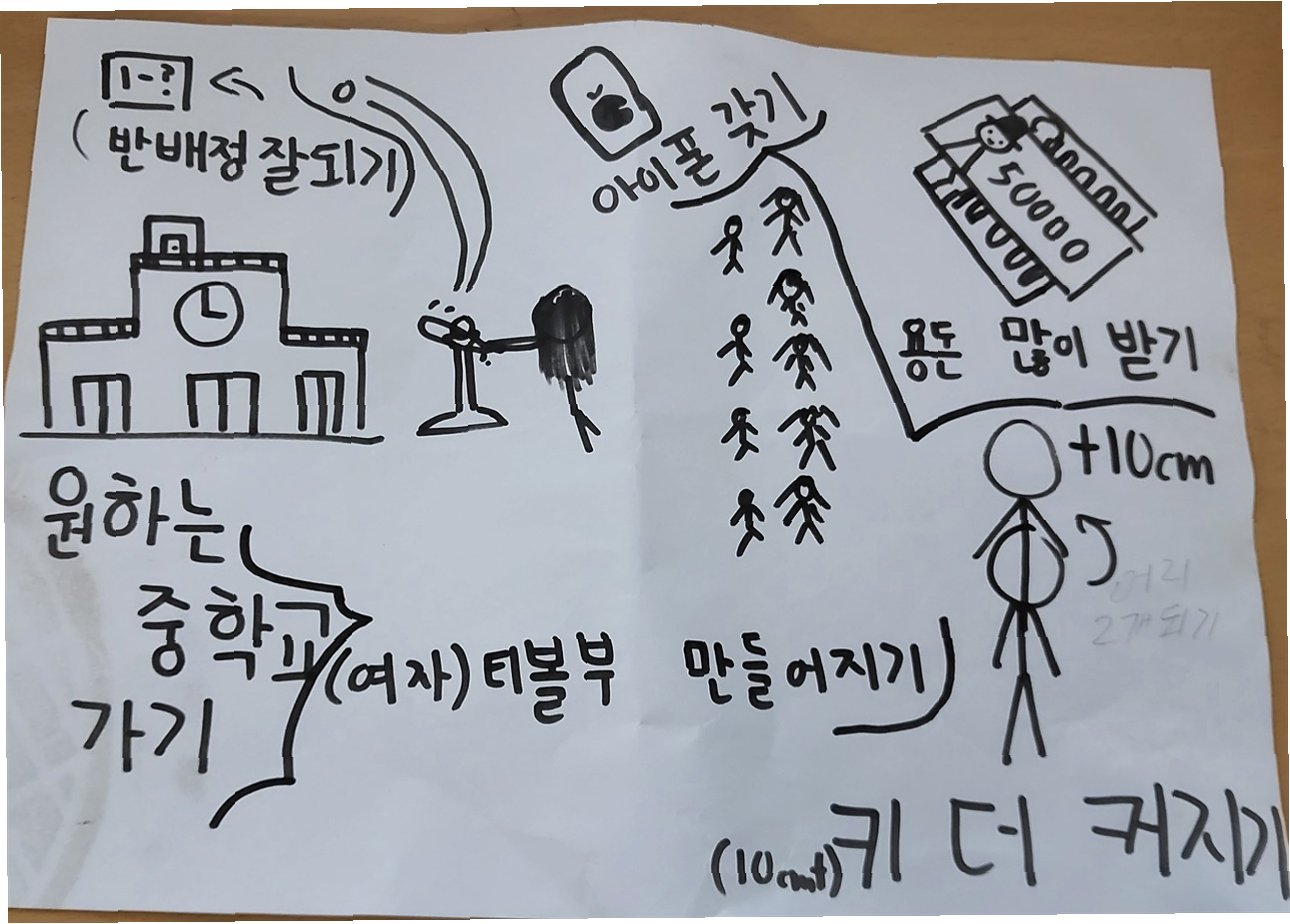 1-?
(반배정 잘되기)
아이폰 갖기
50000
용돈 많이 받기
+10cm
원하는
중학교
가기
(여자) 티볼부 만들어지기
2개되기
(10cm+) 키 더 커지기